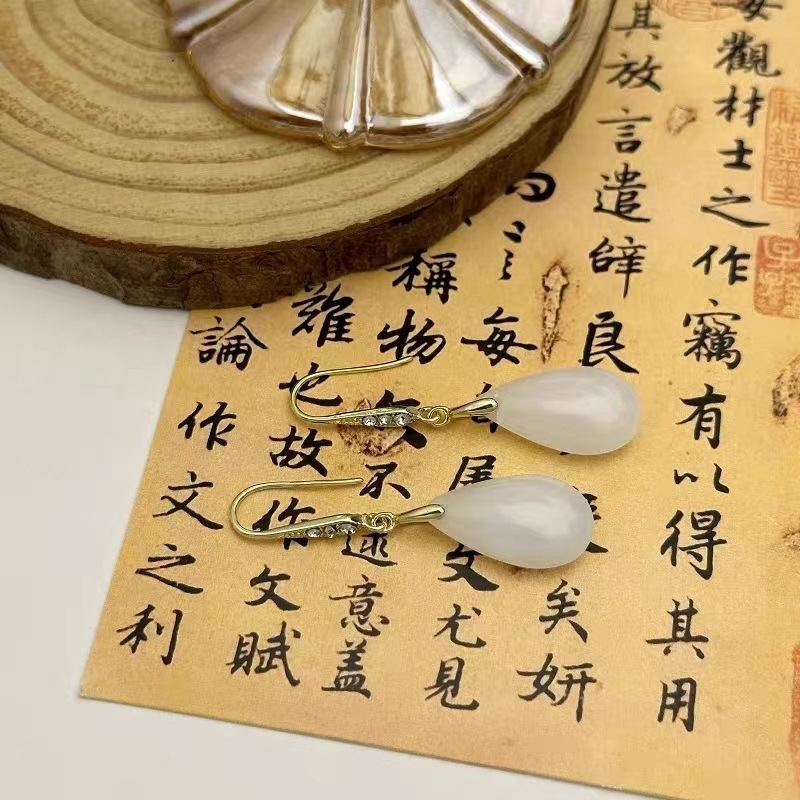 每觀材士之作竊有以得其用
其放言遣辭良矣妍
每自屬文尤見
稱物文不逮意蓋
難也故作文賦
論作文之利